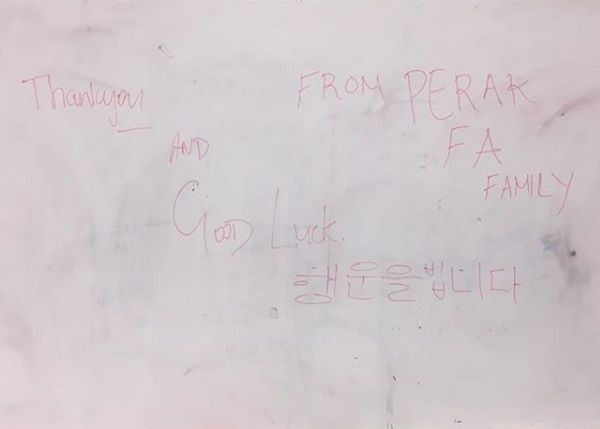 Thankyou
AND
Good Luck.
FROM PERAK
FA
FAMILY
행운을빕니다